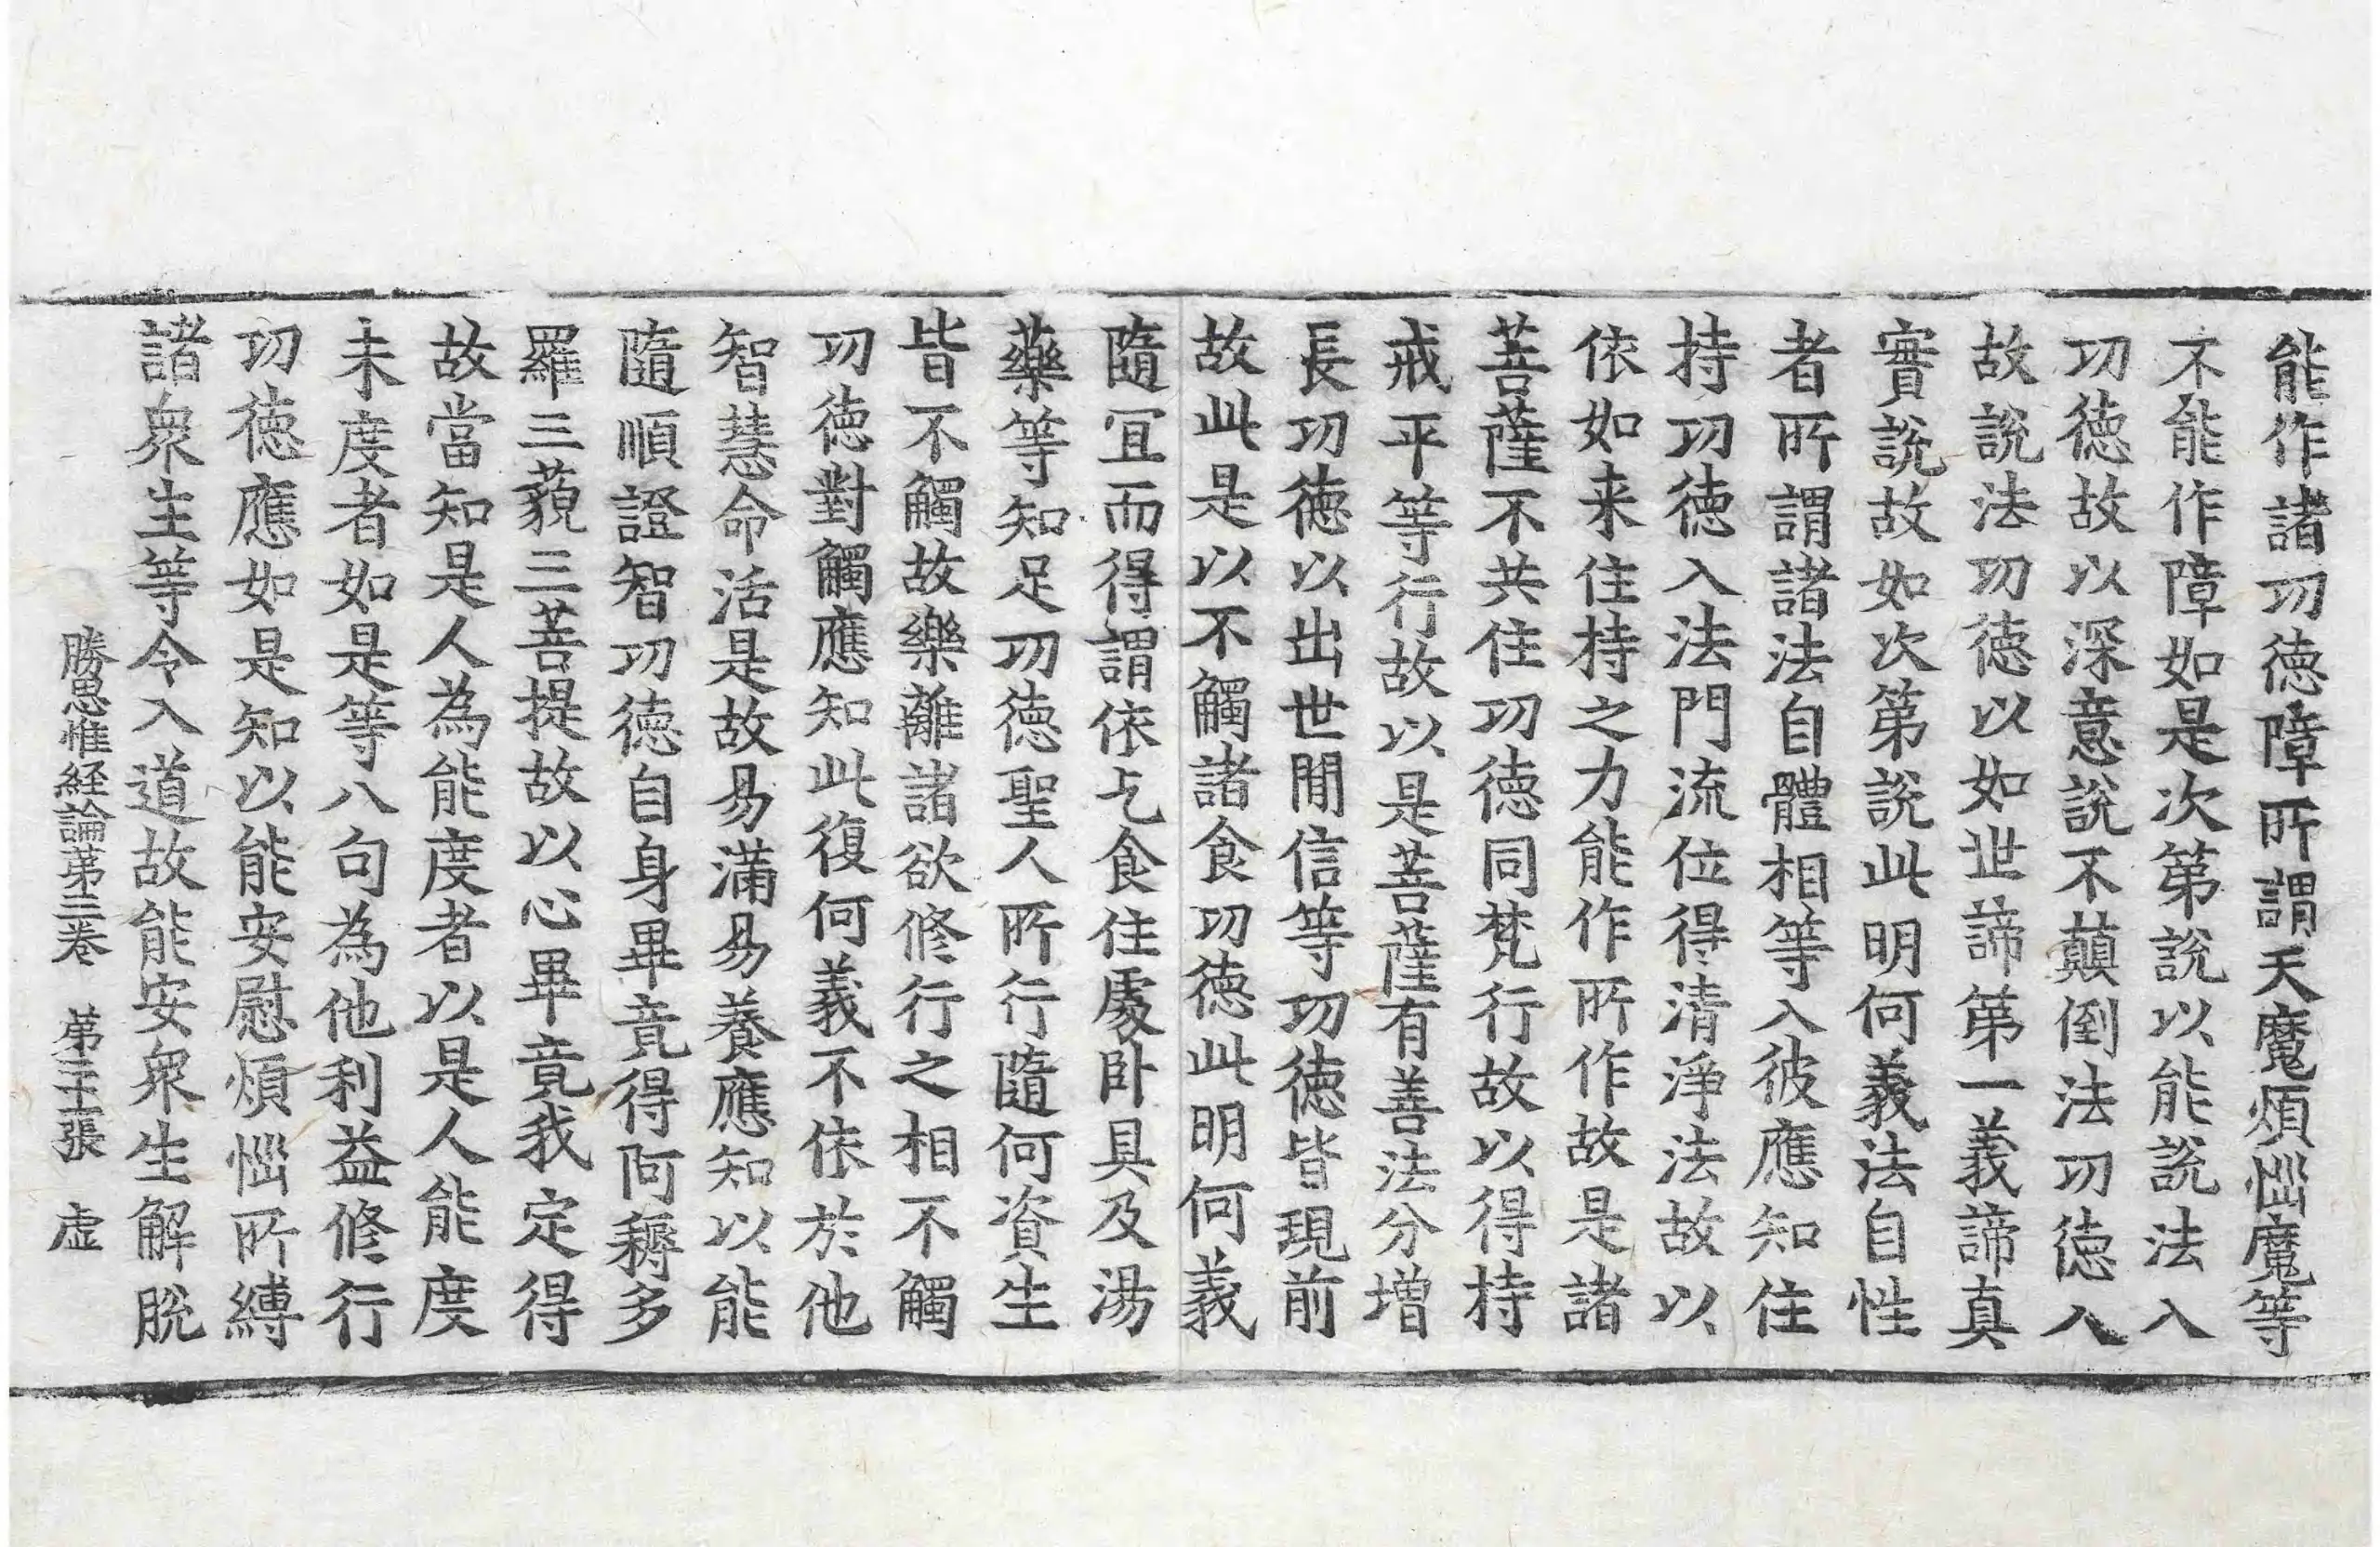 能作諸功徳障所謂天魔煩惱魔等
不能作障如是次第說以能說法入
功徳故以深意說不顛倒法功徳入
故說法功徳以如世諦第一義諦真
實說故如次第說此明何義法自性
者所謂諸法自體相等入彼應知住
持功徳入法門流位得清淨法故以
依如来住持之力能作所作故是諸
菩薩不共住功徳同梵行故以得持
戒平等行故以是菩薩有善法分增
長功徳以出世閒信等功徳皆現前
故此是以不觸諸食功徳此明何義
隨冝而得謂依乞食住處卧具及湯
藥等知足功徳聖人所行隨何資生
皆不觸故樂離諸欲修行之相不觸
功徳對觸應知此復何義不依於他
智慧命活是故易滿易養應知以能
隨順證智功徳自身畢竟得阿耨多
羅三藐三菩提故以心畢竟我定得
故當知是人為能度者以是人能度
未度者如是等八句為他利益修行
功徳應如是知以能安慰煩惱所縛
諸衆生等令入道故能安衆生解脫
勝思惟經論第三卷　第二十張　虛